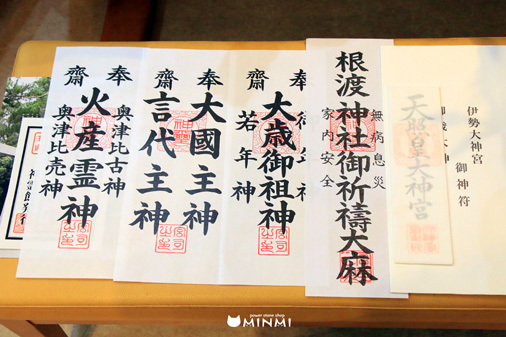 伊勢大神宮
御神符
天照皇大神宮
無病息災
根渡神社御祈禱大麻
家内安全
齋
奉
大歳御祖神
若年神
奉
大國主神
齋
言代主神
奉
齋
奥津比古神
火産霊神
奥津比売神
power stone shop
MINMI